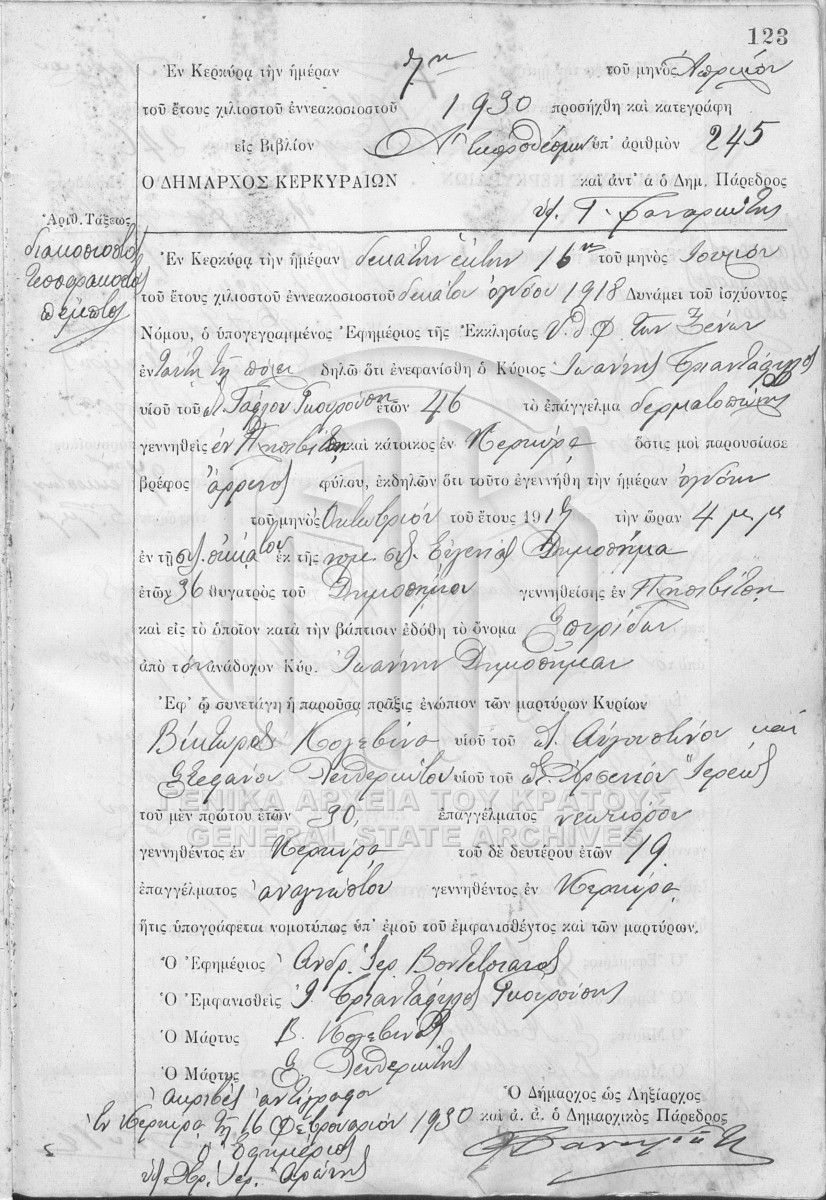 123
Ἐν Κερκύρᾳ τὴν ἡμέραν 7ην τοῦ μηνὸς Ἀπριλίου
τοῦ ἔτους χιλιοστοῦ ἐννεακοσιοστοῦ 1930 προσήχθη καὶ κατεγράφη
εἰς Βιβλίον Α' ἐκπροθέσμων ὑπ' ἀριθμὸν 245
Ο ΔΗΜΑΡΧΟΣ ΚΕΡΚΥΡΑΙΩΝ καὶ ἀντ' α ὁ Δημ. Πάρεδρος
Ἀριθ. Τάξεως
διακοσιοστὸς
τεσσαρακοστὸς
πέμπτος
Ἐν Κερκύρᾳ τὴν ἡμέραν δεκάτην ἕκτην 16ην τοῦ μηνὸς Ἰουνίου
τοῦ ἔτους χιλιοστοῦ ἐννεακοσιοστοῦ δεκάτου ὀγδόου 1918 Δυνάμει τοῦ ἰσχύοντος
Νόμου, ὁ ὑπογεγραμμένος Ἐφημέριος τῆς Ἐκκλησίας Υ. Θ. Φ. τῶν Ξένων
ἐνταύτῃ τῇ πόλει δηλῶ ὅτι ἐνεφανίσθη ὁ Κύριος Ἰωάννης Τριαντάφυλλος
υἱοῦ τοῦ Γκουρούση ἐτῶν 46 τὸ ἐπάγγελμα δερματοπώλης
γεννηθεὶς ἐν καὶ κάτοικος ἐν Κερκύρᾳ ὅστις μοὶ παρουσίασε
βρέφος ἄρρενος φύλου, ἐκδηλῶν ὅτι τοῦτο ἐγεννήθη τὴν ἡμέραν ὀγδόην
τοῦ μηνὸς Ὀκτωβρίου τοῦ ἔτους 1917 τὴν ὥραν 4 μ μ
ἐν τῇ οἰκίᾳ του ἐκ τῆς νομ. συζ. Εὐγενίας Δημοσθήμα
ἐτῶν 36 θυγατρὸς τοῦ γεννηθείσης ἐν
καὶ εἰς τὸ ὁποῖον κατὰ τὴν βάπτισιν ἐδόθη τὸ ὄνομα Σπυρίδων
ἀπὸ τὸν ἀνάδοχον Κύρ. Ἰωάννην
Ἐφ' ᾧ συνετάγη ἡ παροῦσα πρᾶξις ἐνώπιον τῶν μαρτύρων Κυρίων
Βίκτωρος Κολεβίνα υἱοῦ τοῦ Αὐγουστίνου καὶ
Στεφάνου υἱοῦ τοῦ Ἀρσενίου Ἱερέως
ΓΕΝΙΚΑ ΑΡΧΕΙΑ ΤΟΥ ΚΡΑΤΟΥΣ
τοῦ μὲν πρώτου ἐτῶν 30, ἐπαγγέλματος νεωκόρου
GENERAL STATE ARCHIVES
γεννηθέντος ἐν Κερκύρᾳ τοῦ δὲ δευτέρου ἐτῶν 19
ἐπαγγέλματος ἀναγνώστου γεννηθέντος ἐν Κερκύρᾳ
ἥτις ὑπογράφεται νομοτύπως ὑπ' ἐμοῦ τοῦ ἐμφανισθέντος καὶ τῶν μαρτύρων.
Ὁ Ἐφημέριος Ἀνδρ. Ἱερ.
Ὁ Ἐμφανισθεὶς Ἰ. Τριαντάφυλλος Γκουρούσης
Ὁ Μάρτυς Β. Κολεβίνας
Ὁ Μάρτυς Σ.
Ἀκριβὲς ἀντίγραφον
Ὁ Δήμαρχος ὡς Ληξίαρχος
Ἐν Κερκύρᾳ τῇ 16 Φεβρουαρίου 1930 καὶ ἀ. ἀ. ὁ Δημαρχικὸς Πάρεδρος
Ὁ Ἐφημέριος